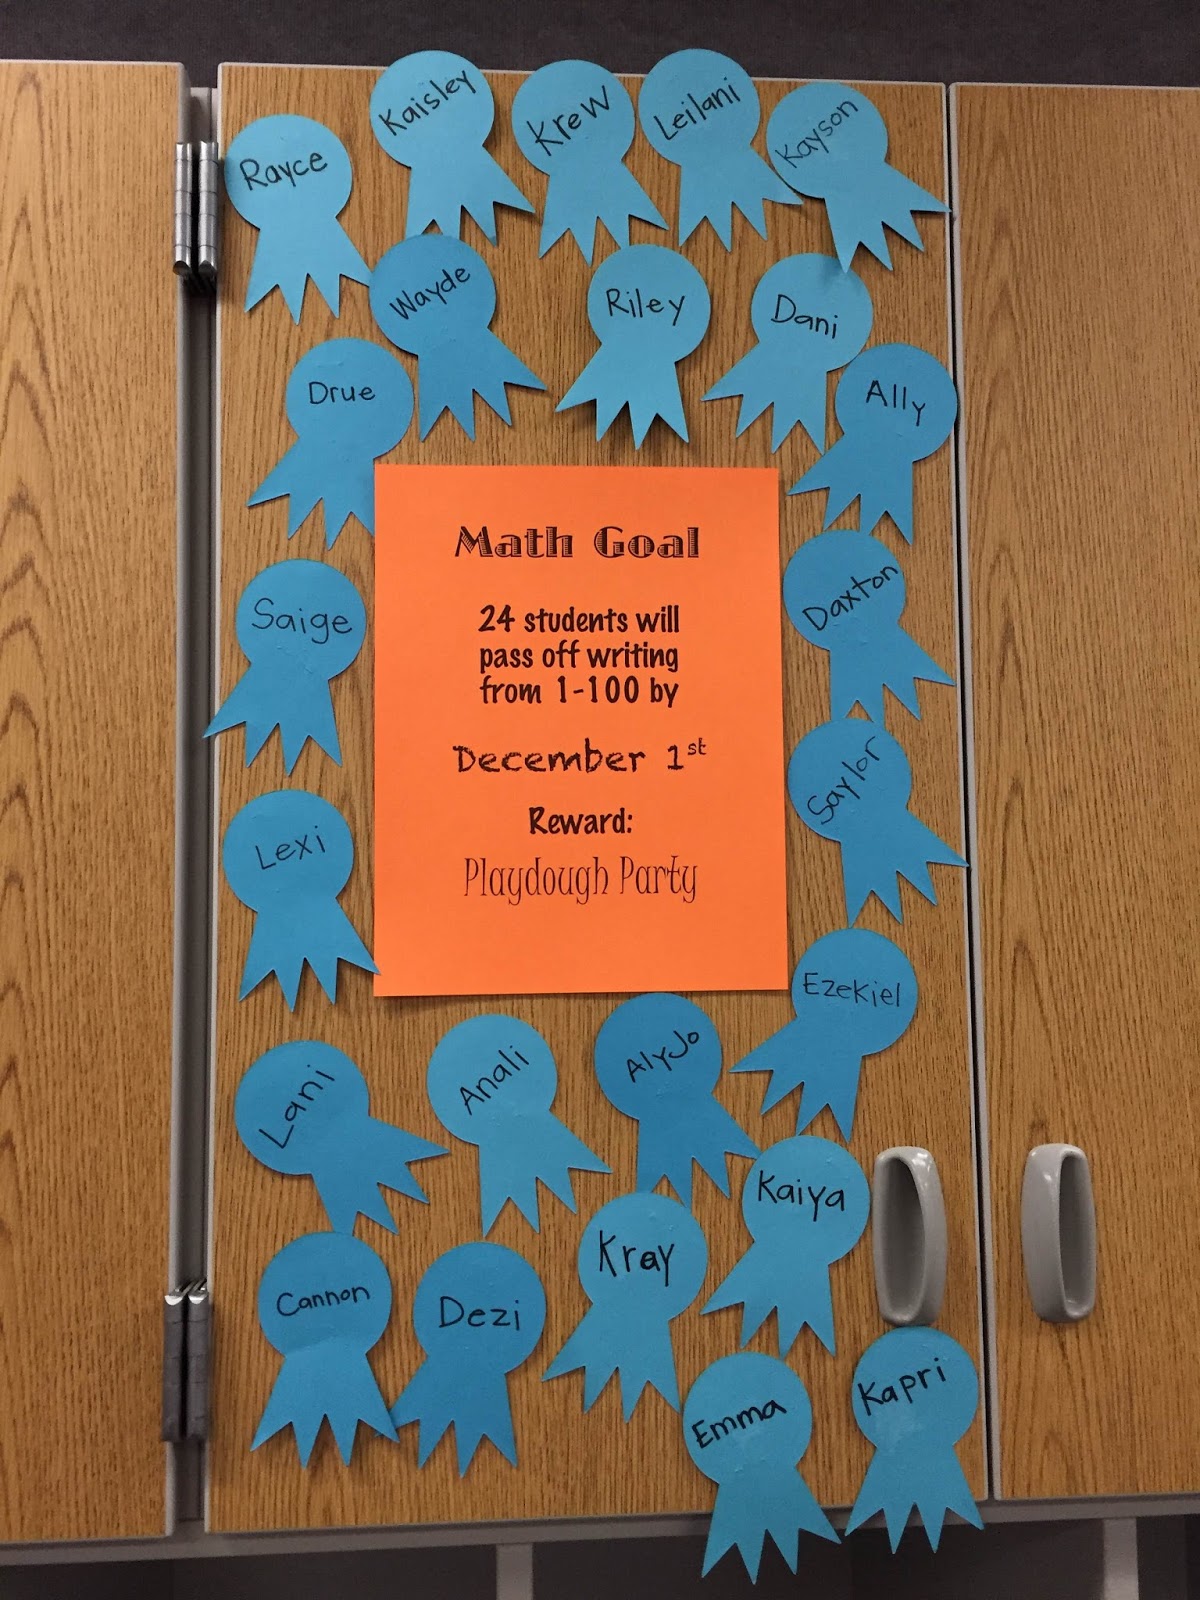 Rayce
Kaisley
Krew
Leilani
Kayson
Wayde
Riley
Dani
Drue
Ally
Math Goal
24 students will
pass off writing
from 1-100 by
December 1st
Reward:
Playdough Party
Saige
Daxton
Lexi
Saylor
Ezekiel
Lani
Anali
AlyJo
Kaiya
Cannon
Dezi
Kray
Emma
Kapri